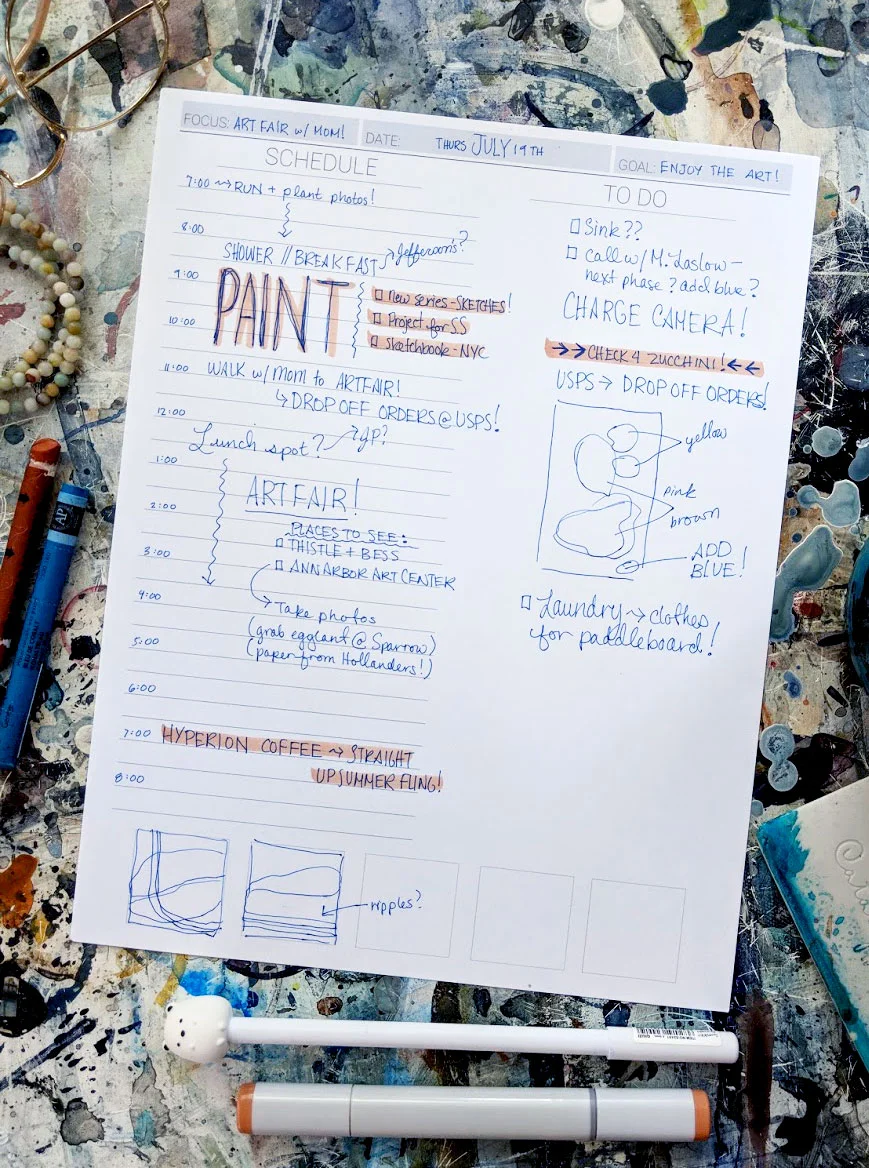 FOCUS: ART FAIR w/ MOM!
DATE: THURS JULY 19TH
GOAL: ENJOY THE ART!
SCHEDULE
7:00 → RUN + plant photos!
8:00
SHOWER // BREAKFAST → Jefferson's?
9:00
PAINT
□ New series - SKETCHES!
10:00
□ Project for SS
□ Sketchbook - NYC
11:00 WALK w/ MOM to ARTFAIR!
↳ DROP OFF ORDERS @ USPS!
12:00
Lunch spot? → JP?
1:00
ART FAIR!
2:00
PLACES TO SEE:
□ THISTLE + BESS
3:00
□ ANN ARBOR ART CENTER
4:00
→ Take photos
(grab egglant @ Sparrow)
5:00
(paper from Hollanders!)
6:00
7:00 HYPERION COFFEE → STRAIGHT
UP SUMMER FLING!
8:00
ripples?
TO DO
□ Sink??
□ Call w/ M. Laslow -
next phase? add blue?
CHARGE CAMERA!
→→ CHECK 4 ZUCCHINI! ←←
USPS → DROP OFF ORDERS!
yellow
pink
brown
ADD
BLUE!
□ Laundry → clothes
for paddleboard!
AP